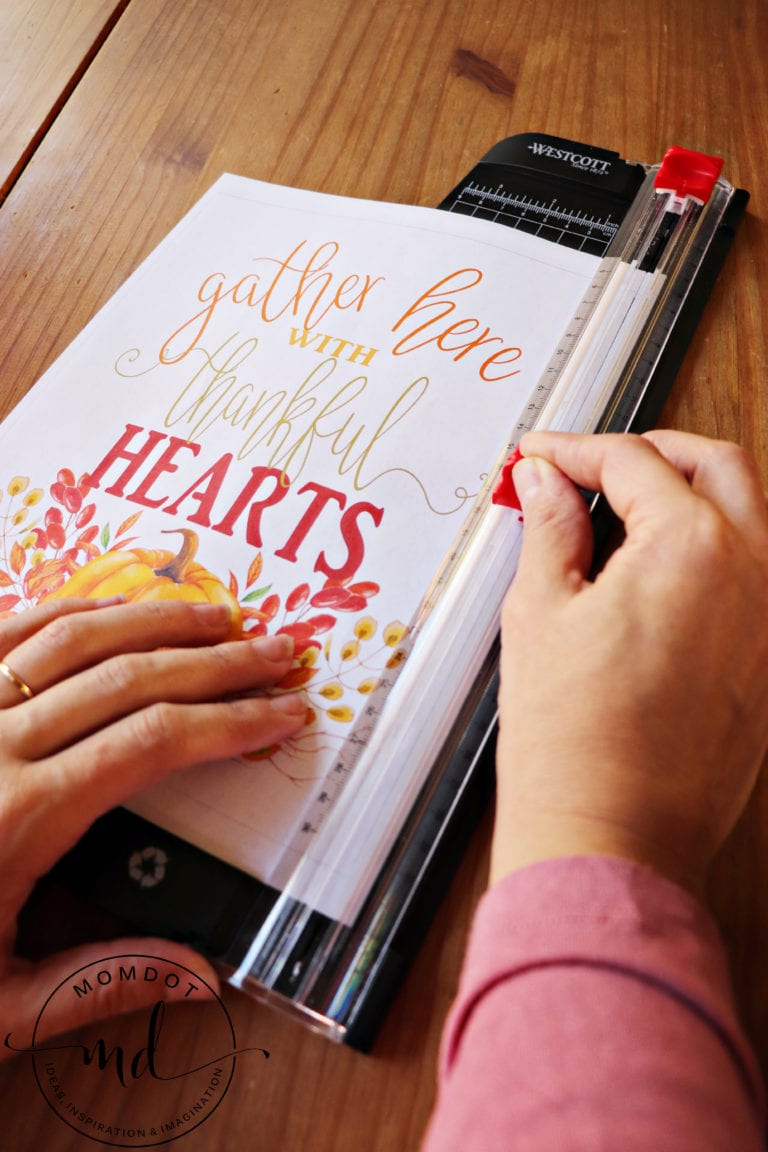 WESTCOTT
gather here
WITH
thankful
HEARTS
MOMDOT
md
IDEAS, INSPIRATION & IMAGINATION